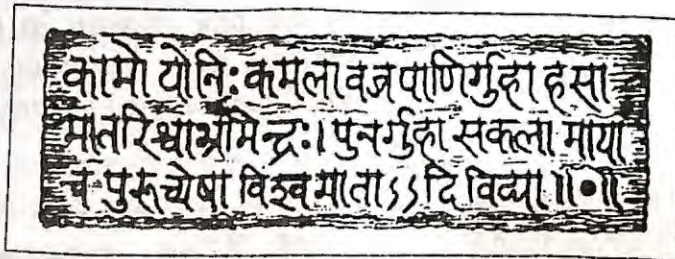 कामो योनिः कमला वज्रपाणिर्गुहा हसा
मातरिश्वाभ्रमिन्द्रः। पुनर्गुहा सकला माया
च पुरूच्येषा विश्वमाताऽऽदि विद्या॥•॥